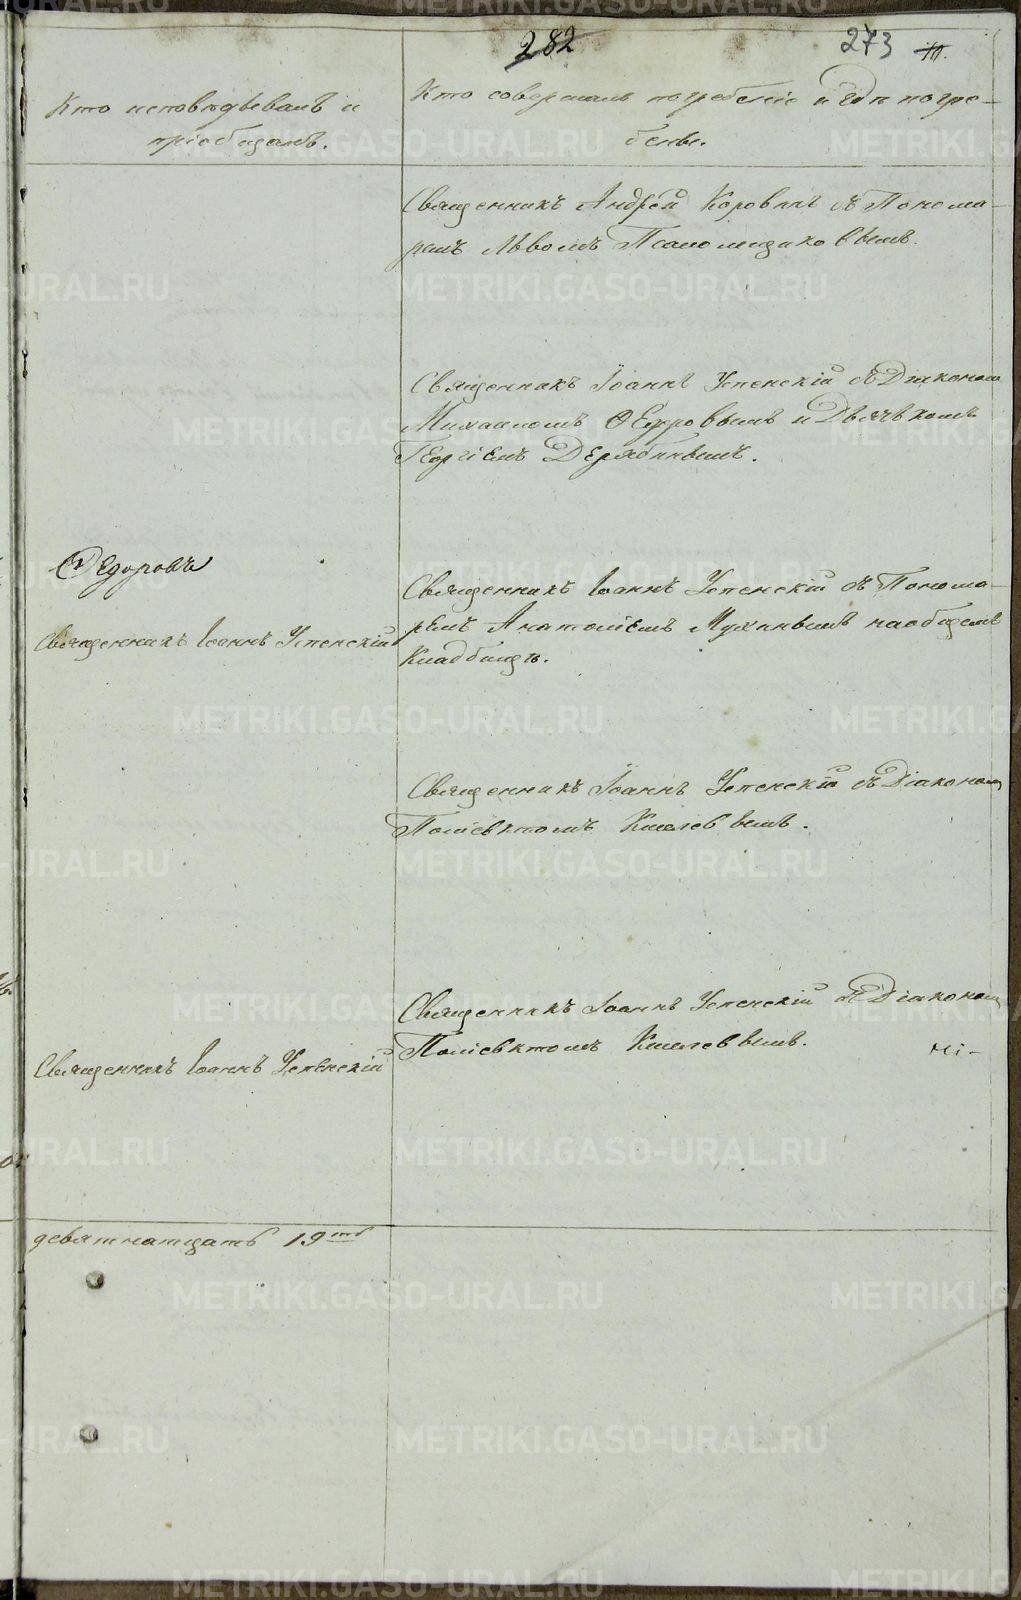 282
273
Кто исповѣдывалъ и
пріобщалъ.
Кто совершалъ погребеніе и гдѣ погре-
бены.
Священникъ Андрей Коровинъ съ Понома-
ремъ Львомъ Псаломщиковымъ.
Священникъ Іоаннъ Успенскій съ Діакономъ
Михаиломъ Ѳедоровымъ и Дьячькомъ
Георгіемъ Дерябинымъ.
Ѳедоровъ
Священникъ Іоаннъ Успенскій
Священникъ Іоаннъ Успенскій съ Понома-
ремъ Анатоліемъ Мухинымъ наобщемъ
Кладбищѣ.
Священникъ Іоаннъ Успенскій съ Діакономъ
Поліевктомъ Киселевымъ.
Священникъ Іоаннъ Успенскій
Священникъ Іоаннъ Успенскій съ Діакономъ
Поліевктомъ Киселевымъ.
ні-
девятнатцать 19
METRIKI.GASO-URAL.RU